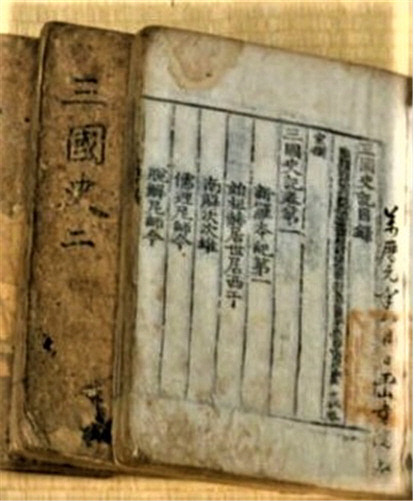 三國史二
萬曆元年
三國史記目錄
宣撰
三國史記卷第一
新羅本紀第一
始祖赫居世居西干
南解次次雄
儒理尼師今
脫解尼師今